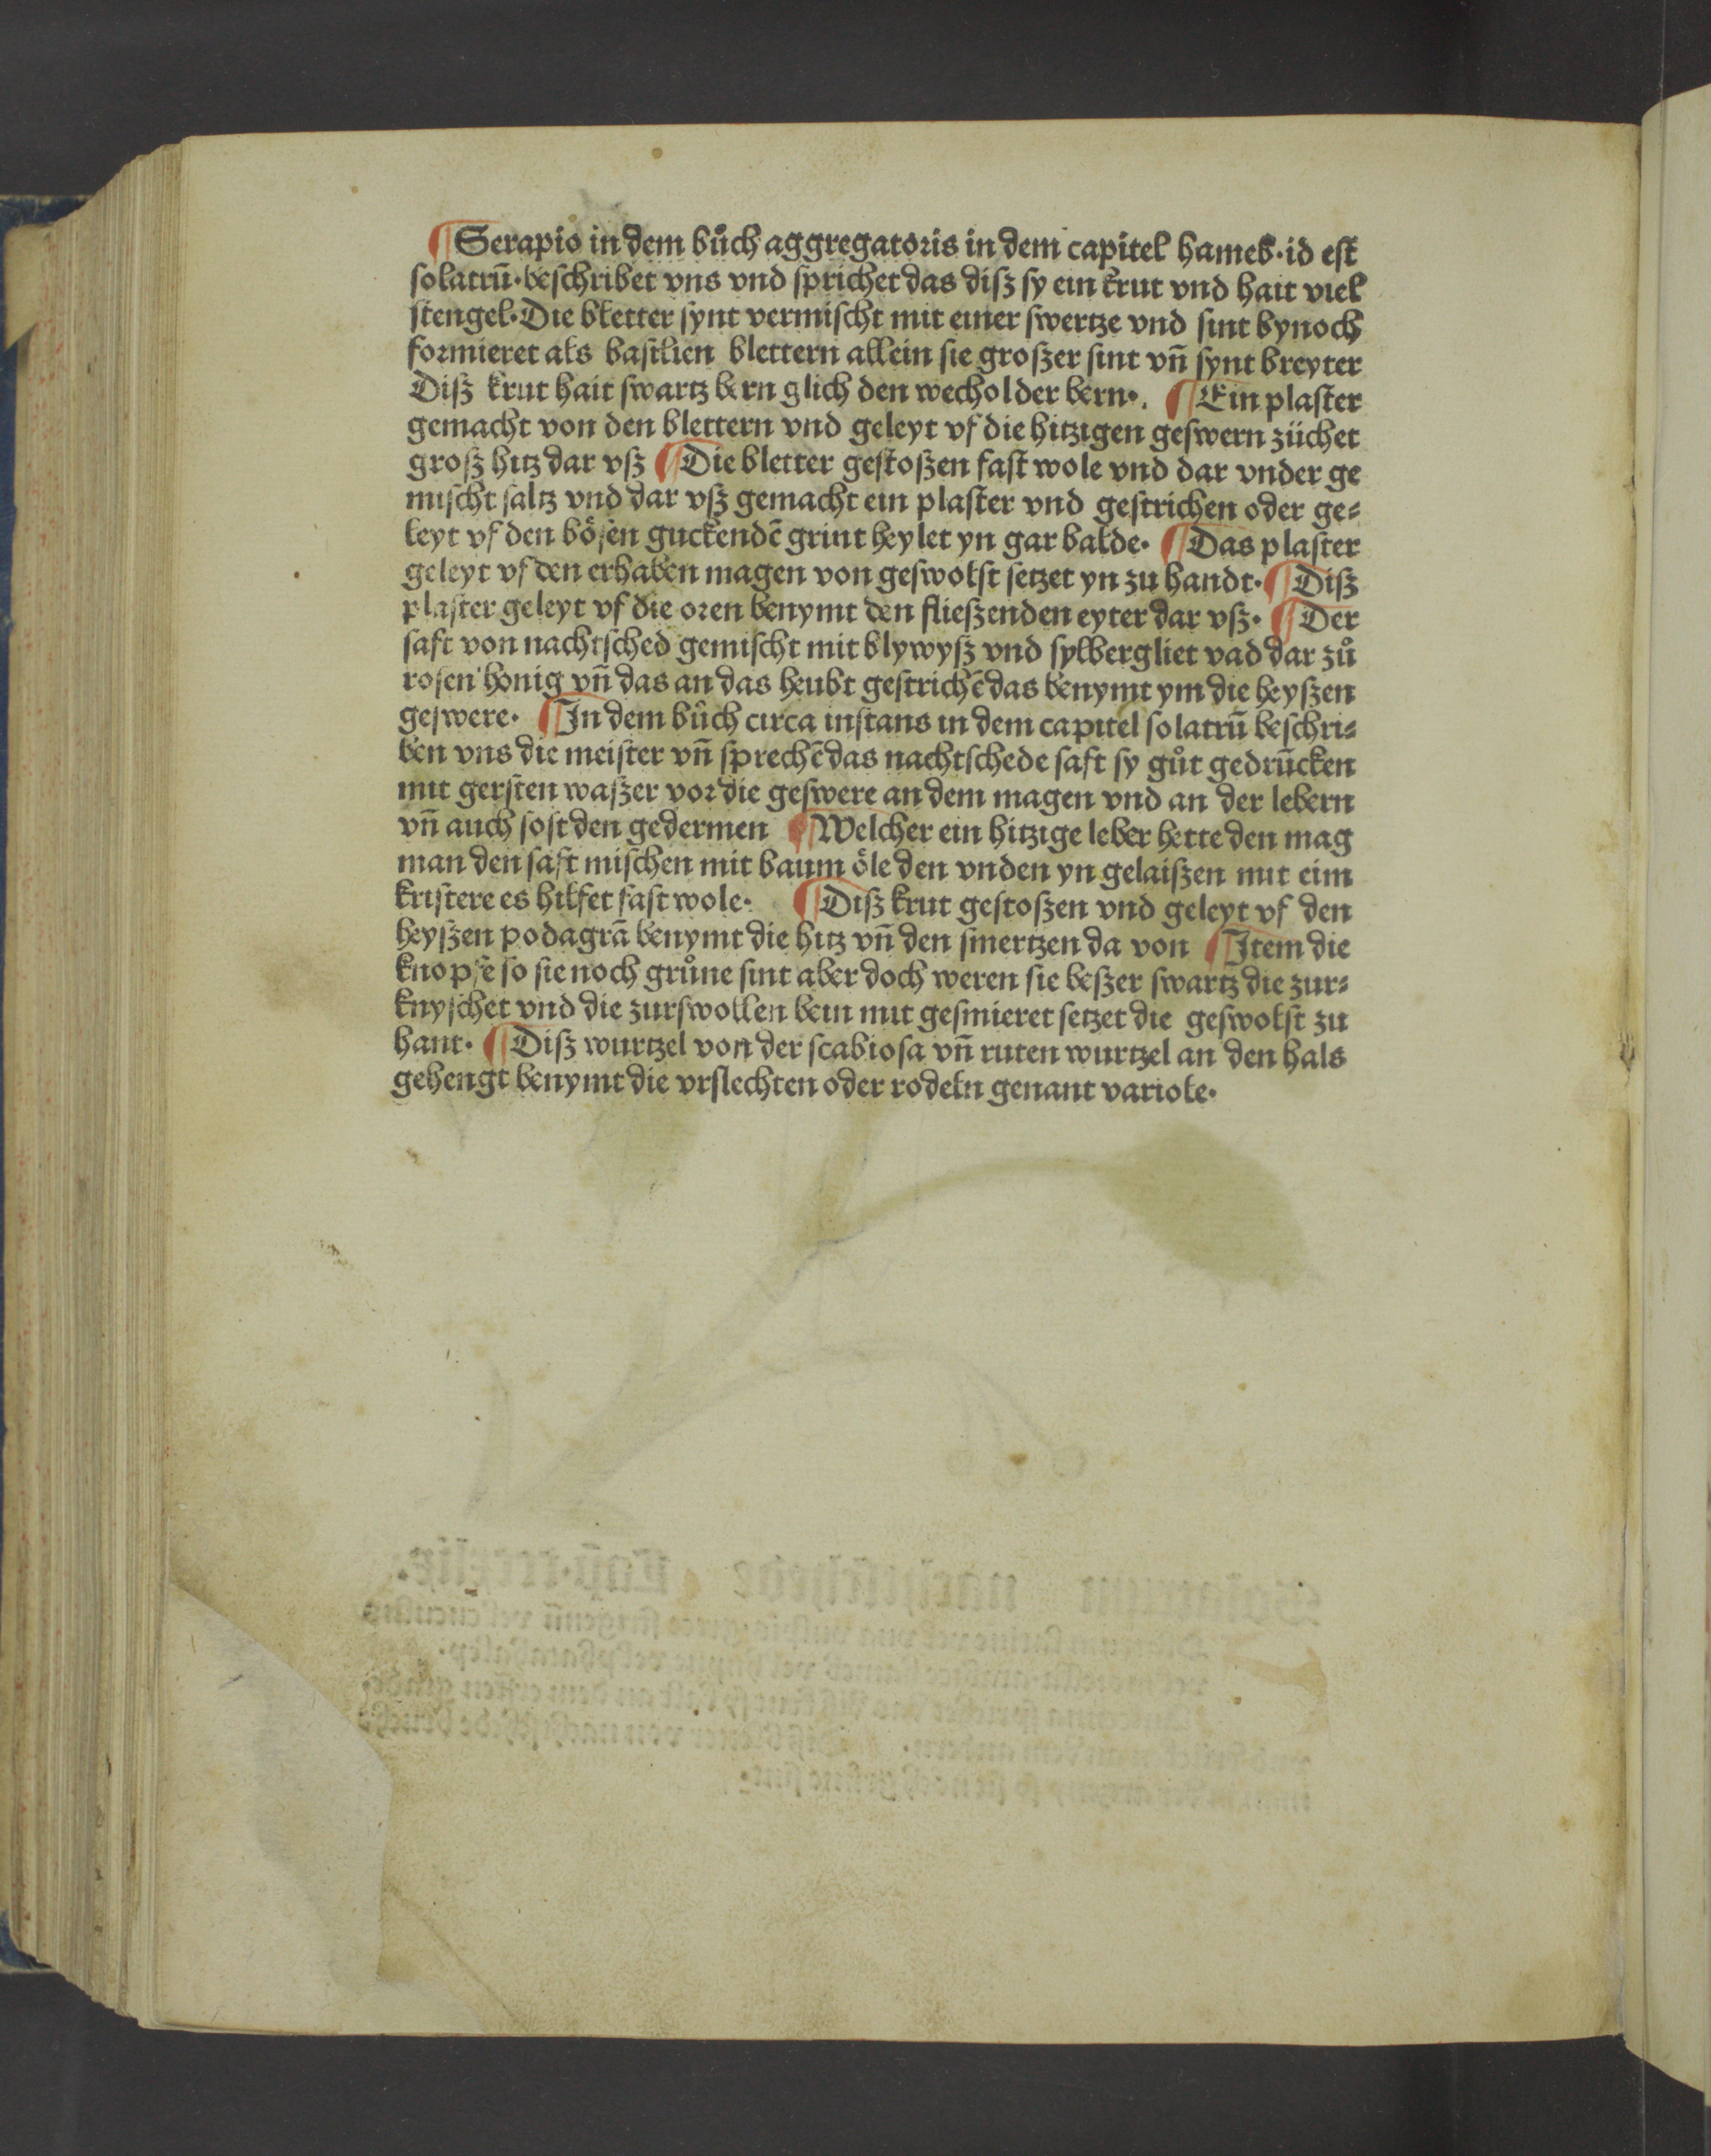 ¶ Serapio in dem bůch aggregatoris in dem capitel hameb·id est
solatrū·beschribet vns vnd sprichet das disz sy ein krut vnd hait viel
stengel·Die bletter synt vermischt mit einer swertze vnd sint bynoch
formieret als basilien blettern allein sie groszer sint vn̄ synt breyter
Disz krut hait swartz bern glich den wecholder bern·. ¶ Ein plaster
gemacht von den blettern vnd geleyt vf die hitzigen geswern züchet
grosz hitz dar vsz ¶ Die bletter gestoszen fast wole vnd dar vnder ge
mischt saltz vnd dar vsz gemacht ein plaster vnd gestrichen oder ge⸗
leyt vf den bösen guckendē grint heylet yn gar balde· ¶ Das plaster
geleyt vf den erhaben magen von geswolst setzet yn zu handt· ¶ Disz
plaster geleyt vf die oren benymt den flieszenden eyter dar vsz· ¶ Der
saft von nachtsched gemischt mit blywysz vnd sylbergliet vad dar zů
rosen honig vn̄ das an das heubt gestrichē das benymt ym die heyszen
geswere· ¶ In dem bůch circa instans in dem capitel solatrū beschri⸗
ben vns die meister vn̄ sprechē das nachtschede saft sy gůt gedrūcken
mit gersten waszer vor die geswere an dem magen vnd an der lebern
vn̄ auch sost den gedermen ¶ Welcher ein hitzige leber hette den mag
man den saft mischen mit baum öle den vnden yn gelaiszen mit eim
kristere es hilfet fast wole· ¶ Disz krut gestoszen vnd geleyt vf den
heyszen podagrā benymt die hitz vn̄ den smertzen da von ¶ Item die
knopfe so sie noch grůne sint aber doch weren sie beszer swartz die zur⸗
knyschet vnd die zurswollen bein mit gesmieret setzet die geswolst zu
hant· ¶ Disz wurtzel von der scabiosa vn̄ ruten wurtzel an den hals
gehengt benymt die vrslechten oder rodeln genant variole·